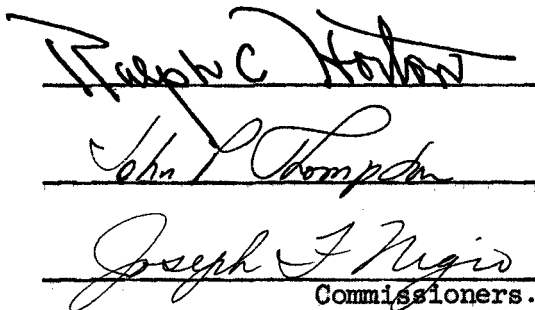 Ralph C Horton
John L Thompson
Joseph F Nigro
Commissioners.